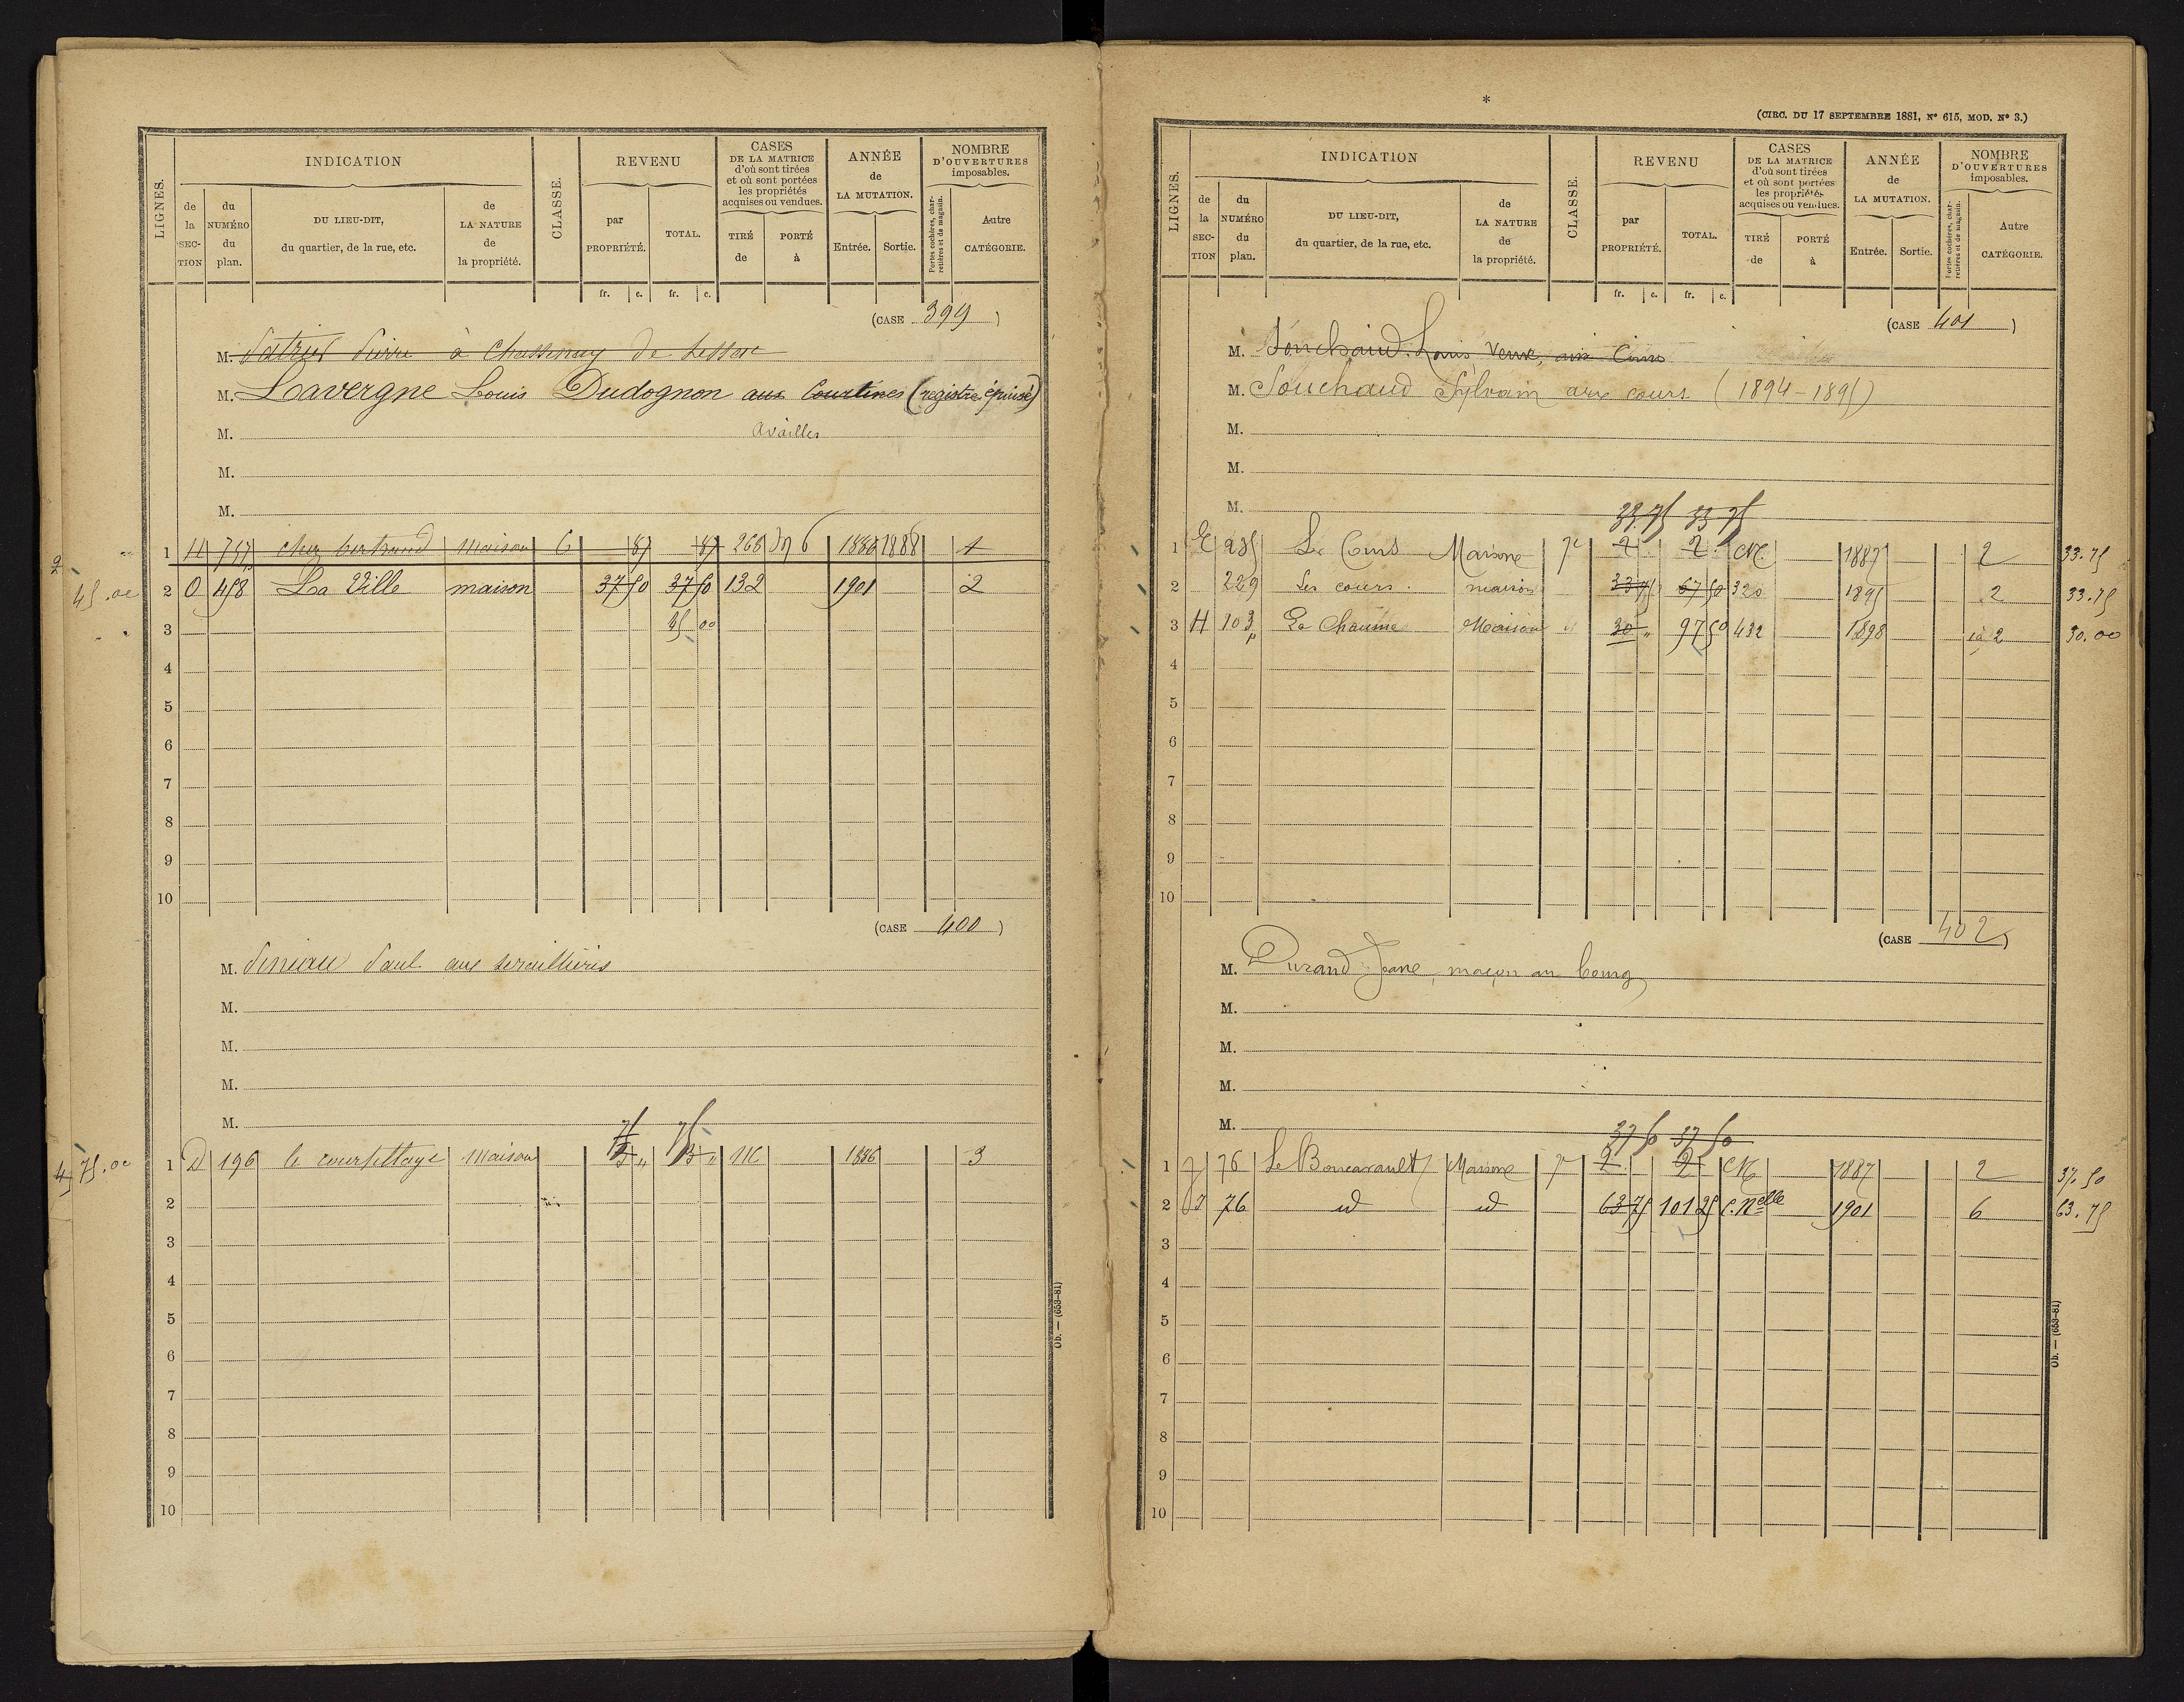 LIGNES. INDICATION CLASSE. REVENU CASES DE LA MATRICE d'où sont tirées et où sont portées les propriétés acquises ou vendues. ANNÉE de LA MUTATION. NOMBRE D'OUVERTURES imposables.
de la SECTION du NUMÉRO du plan. DU LIEU-DIT, du quartier, de la rue, etc. de LA NATURE de la propriété. par PROPRIÉTÉ. TOTAL. TIRÉ de PORTÉ à Entrée. Sortie. Portes cochères, charretières et de magasin. Autre CATÉGORIE.
fr. c. fr. c.
(CASE 399)
M. Pierre à de
M. Lavergne Louis Dudognon aux Courtines (registre épuisé)
M. availles
M.
M.
1 H 757 chez bertrand maison 6 87 87 268 6 1886 1888 1
45.00 2 O 458 La Ville maison 37 50 37 50 132 1901 2
3 45 00
4
5
6
7
8
9
10
(CASE 400)
M. Paul aux
M.
M.
M.
M. 75 75
4 75.00 1 D 196 le maison 3 " 3 " 116 1886 3
2
3
4
5
6
7
8
9
10
Ob. — (653-81)
*
(CIRC. DU 17 SEPTEMBRE 1881, N° 615, MOD. N° 3.)
LIGNES. INDICATION CLASSE. REVENU CASES DE LA MATRICE d'où sont tirées et où sont portées les propriétés acquises ou vendues. ANNÉE de LA MUTATION. NOMBRE D'OUVERTURES imposables.
de la SECTION du NUMÉRO du plan. DU LIEU-DIT, du quartier, de la rue, etc. de LA NATURE de la propriété. par PROPRIÉTÉ. TOTAL. TIRÉ de PORTÉ à Entrée. Sortie. Portes cochères, charretières et de magasin. Autre CATÉGORIE.
fr. c. fr. c.
(CASE 401)
M. Souchaud Louis Veuve, aux Cours
M. Souchaud Sylvain aux cours (1894-1895)
M.
M.
M. 33.75 33 75
1 E 235 Le Cours Maisone 7e 2 2 CN 1887 2 33.75
2 229 Les cours. maison 33 75 67 50 320 1895 2 33.75
3 H 103p La Chaume Maison 30 " 97 50 432 1898 2 30.00
4
5
6
7
8
9
10
(CASE 402)
M. Durand Jane, maçon au bourg
M.
M.
M.
M. 37 50 37 50
1 J 76 Le Maisone 7e 2 2 CN 1887 2 37.50
2 J 76 id id 63 75 101 25 C.Nelle 1901 6 63.75
3
4
5
6
7
8
9
10
Ob. — (653-81)